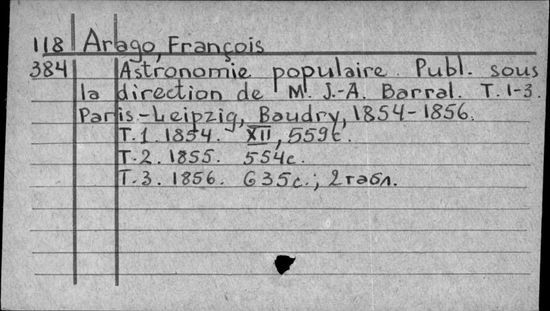 118 Arago, François
384 Astronomie populaire. Publ. sous
la direction de M. J.-A. Barral. T. 1-3.
Paris-Leipzig, Baudry, 1854-1856.
T. 1. 1854. XII, 559 с.
T. 2. 1855. 554 с.
T. 3. 1856. 635 с.; 2 табл.